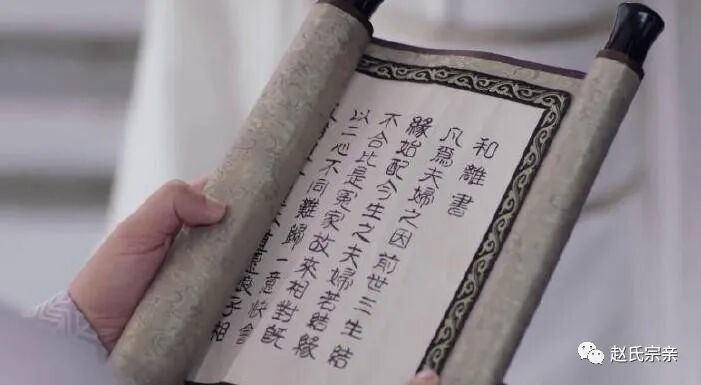 和離書
凡爲夫婦之因前世三生結
緣始配今生之夫婦若結緣
不合比是冤家故來相對既
以二心不同難歸一意快會
子相
赵氏宗亲